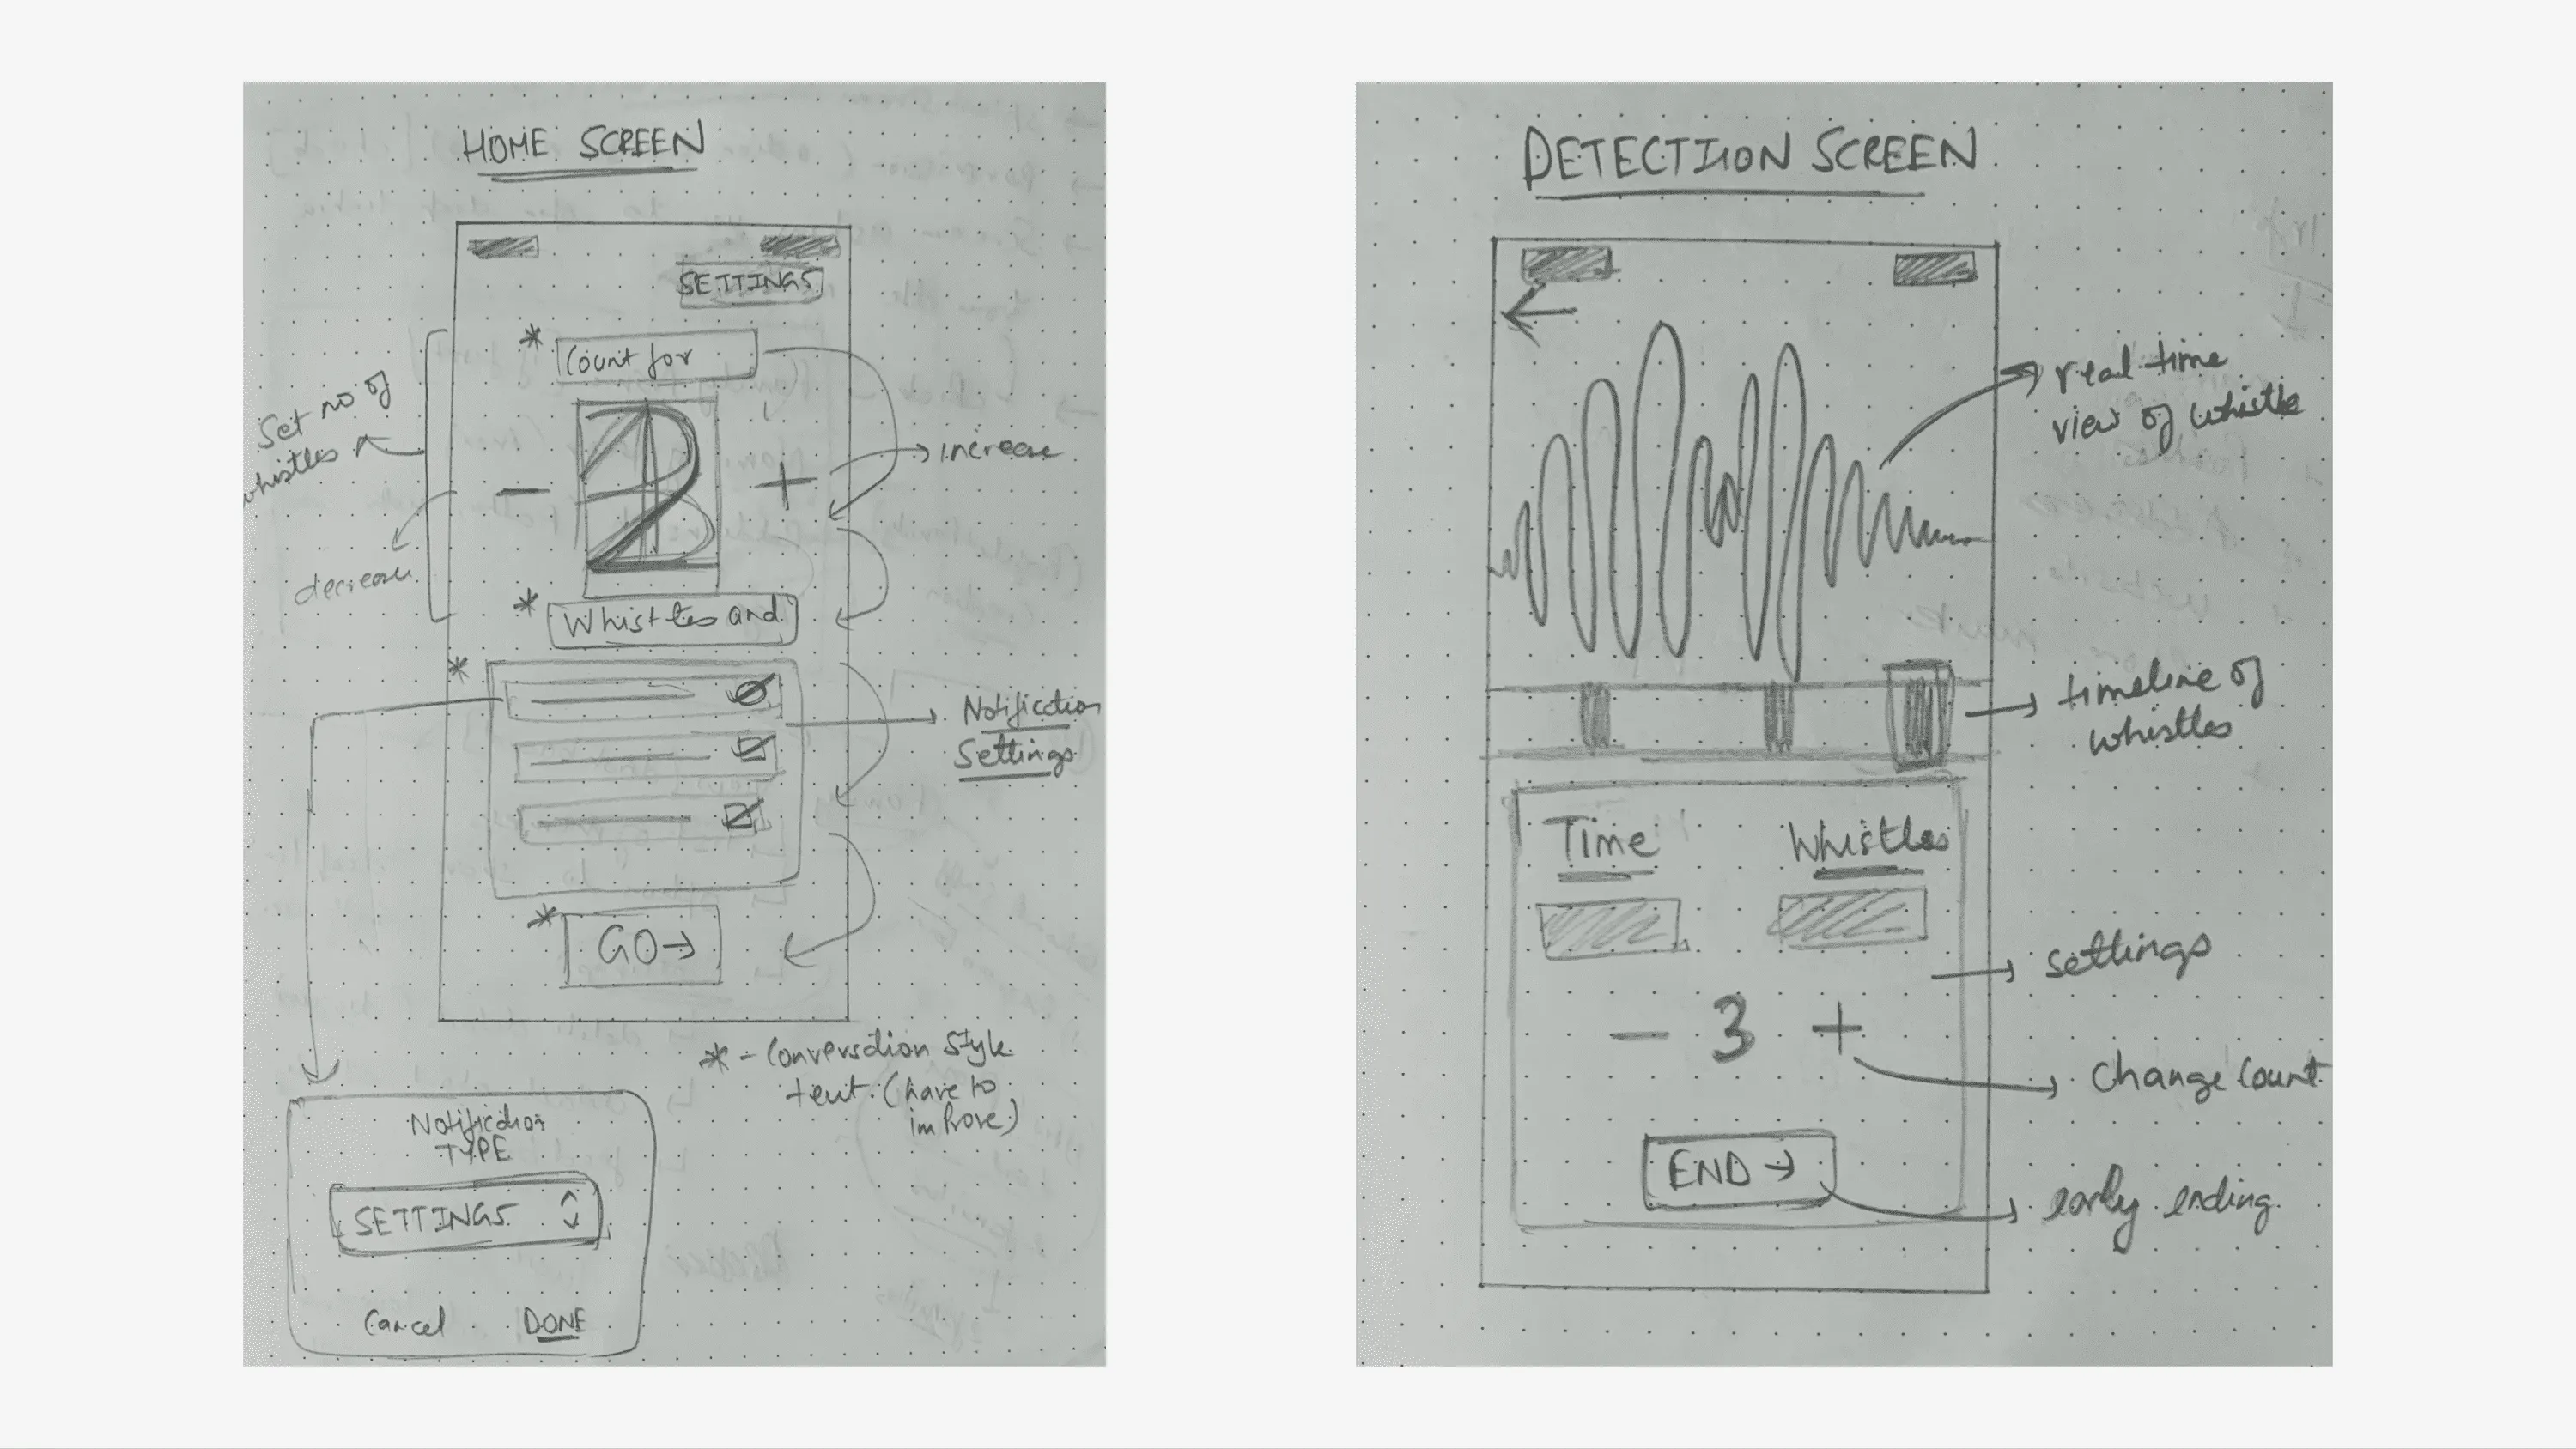 HOME SCREEN
SETTINGS
* Count for
Set no of
whistles
- 2 +
increase
decrease
* Whistles and
*
Notification
Settings
* GO→
* - Conversation Style
text. (have to
improve)
Notification
TYPE
SETTINGS
Cancel DONE
DETECTION SCREEN
←
real time
view of whistle
timeline of
whistles
Time Whistles
settings
- 3 +
Change Count
END →
early ending